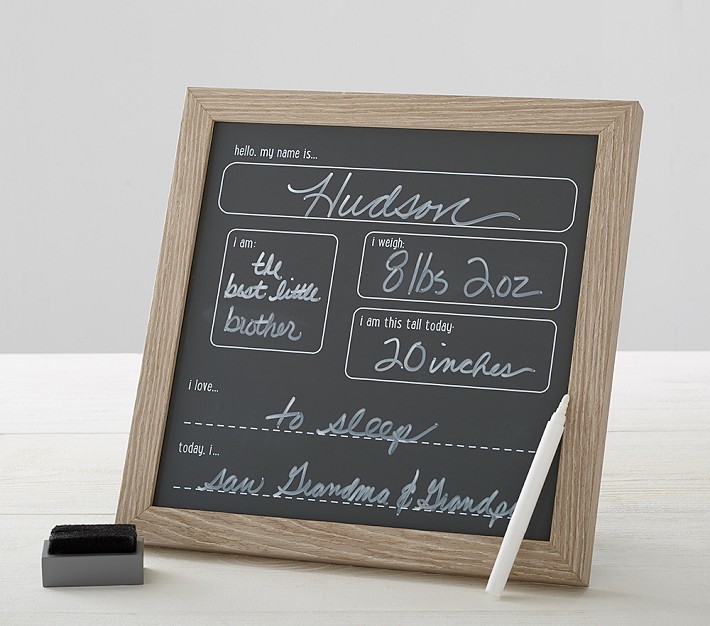 hello. my name is...
Hudson
i am:
the
best little
brother
i weigh:
8 lbs 2oz
i am this tall today:
20 inches
i love...
to sleep
today, i...
saw Grandma & Grandp